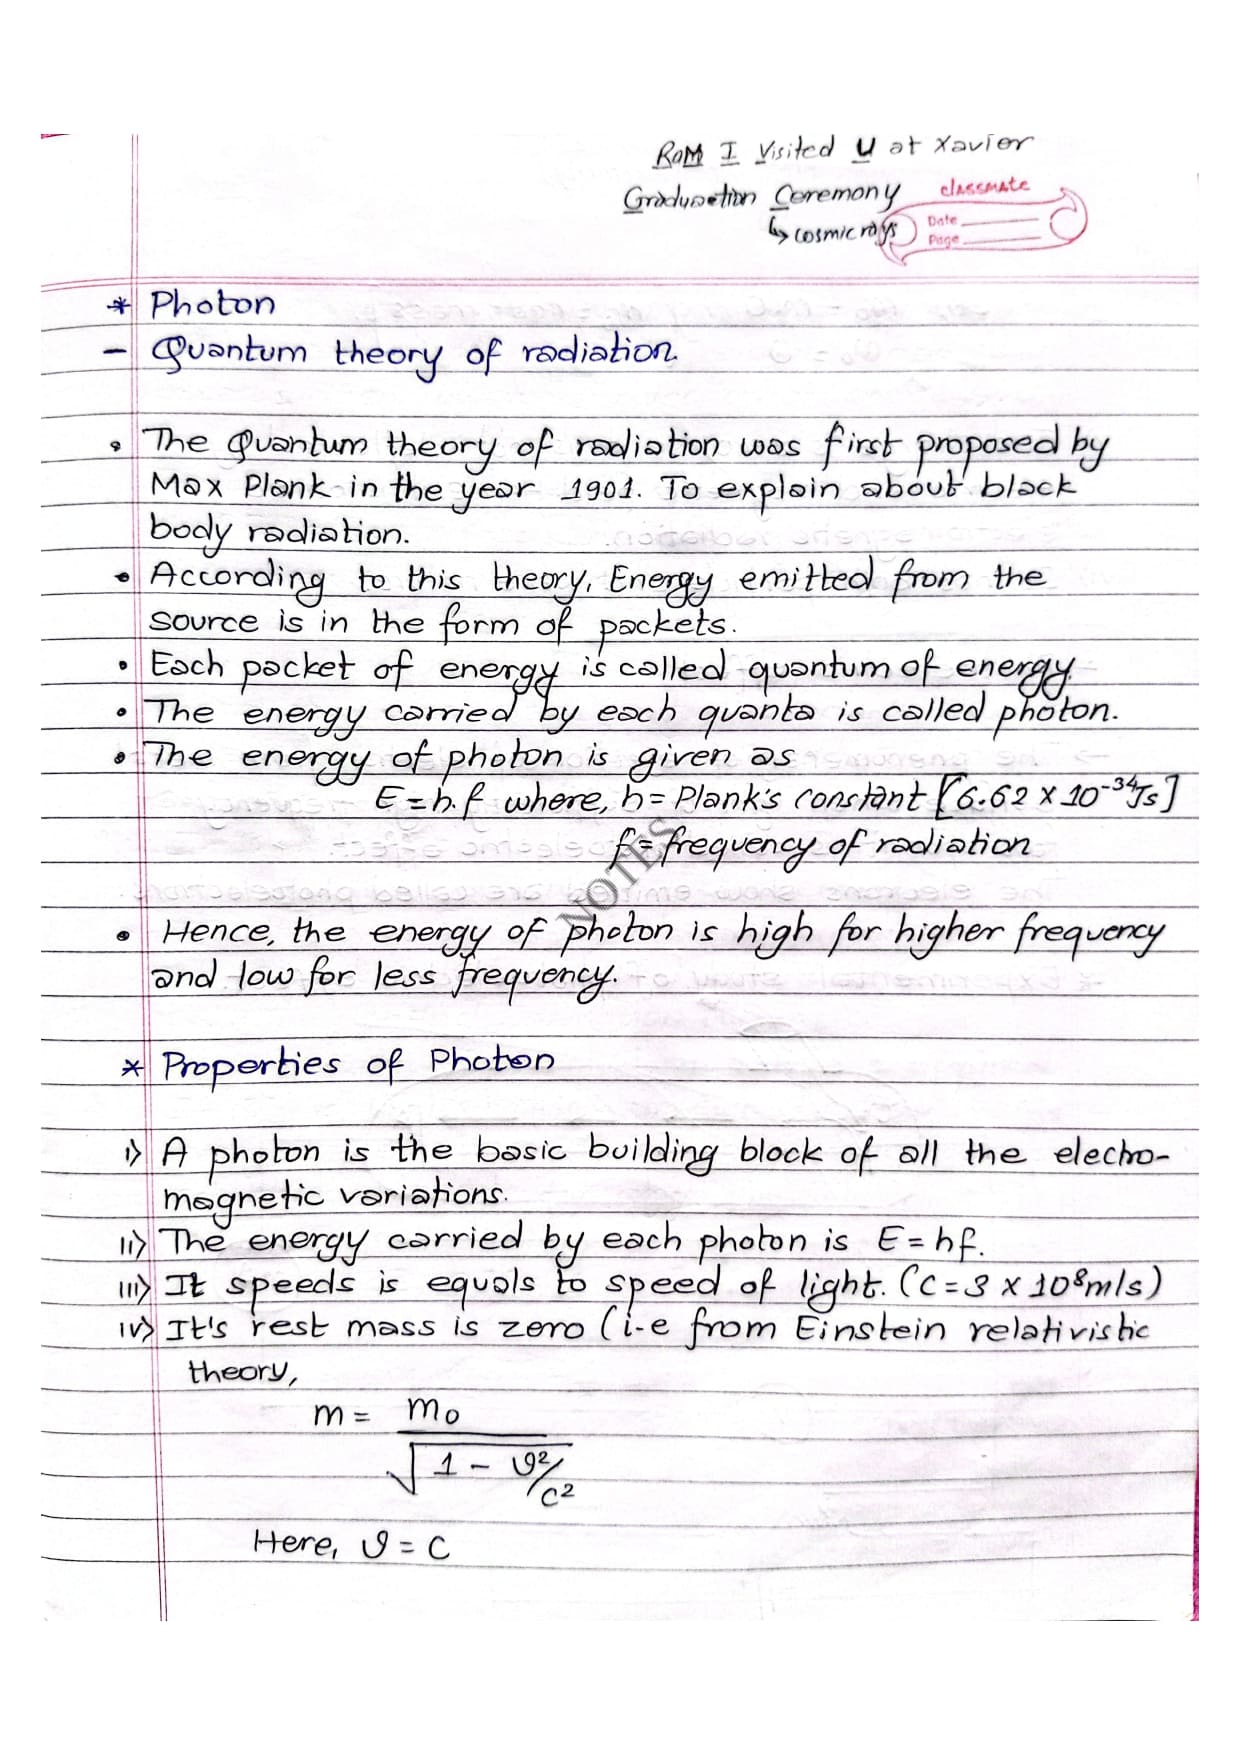 RaM I Visited U at Xavier
Graduation Ceremony
↳ cosmic rays
classmate
Date
Page
* Photon
- Quantum theory of radiation.
• The Quantum theory of radiation was first proposed by
Max Plank in the year 1901. To explain about black
body radiation.
• According to this theory, Energy emitted from the
source is in the form of packets.
• Each packet of energy is called quantum of energy.
• The energy carried by each quanta is called photon.
• The energy of photon is given as
E = h.f where, h = Plank's constant [6.62 x 10⁻³⁴Js]
f = frequency of radiation
NOTES
• Hence, the energy of photon is high for higher frequency
and low for less frequency.
* Properties of Photon
i) A photon is the basic building block of all the electro-
magnetic variations.
ii) The energy carried by each photon is E = hf.
iii) It speeds is equals to speed of light. (C = 3 x 10⁸m/s)
iv) It's rest mass is zero (i-e from Einstein relativistic
theory,
m = m₀ / √(1 - v²/c²)
Here, v = c